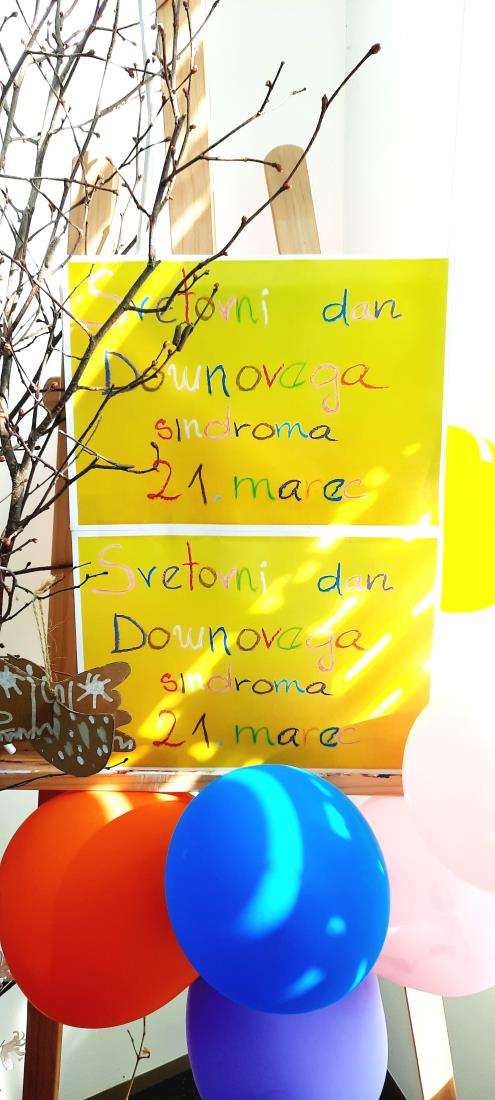 Svetovni dan
Downovega
sindroma
21. marec
Svetovni dan
Downovega
sindroma
21. marec